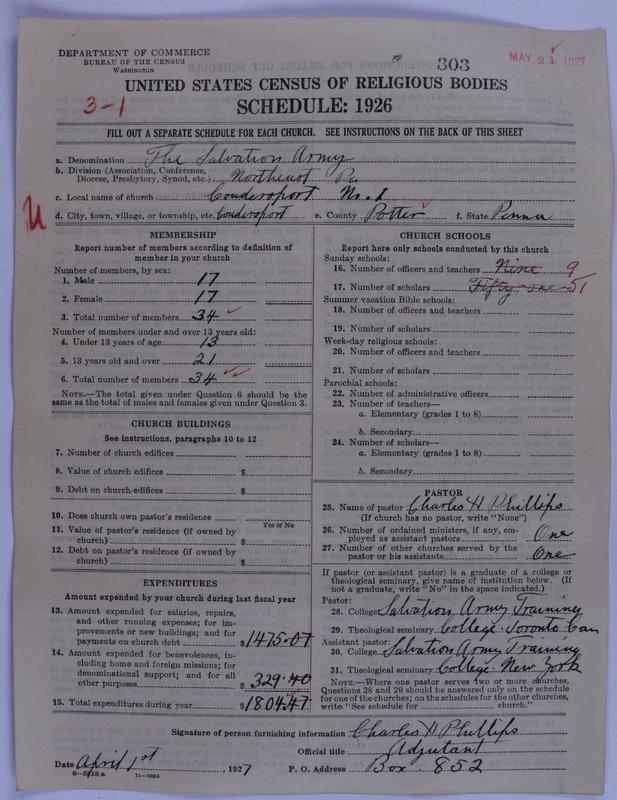 DEPARTMENT OF COMMERCE
BUREAU OF THE CENSUS
WASHINGTON
303
MAY 21 1927
UNITED STATES CENSUS OF RELIGIOUS BODIES
3-1
SCHEDULE: 1926
FILL OUT A SEPARATE SCHEDULE FOR EACH CHURCH. SEE INSTRUCTIONS ON THE BACK OF THIS SHEET
a. Denomination The Salvation Army
b. Division (Association, Conference, Diocese, Presbytery, Synod, etc.) Northeast Pa
c. Local name of church Coudersport No. 1
d. City, town, village, or township, etc. Coudersport e. County Potter f. State Penna
MEMBERSHIP
Report number of members according to definition of
member in your church
Number of members, by sex:
1. Male 17
2. Female 17
3. Total number of members 34
Number of members under and over 13 years old:
4. Under 13 years of age 13
5. 13 years old and over 21
6. Total number of members 34
NOTE.—The total given under Question 6 should be the
same as the total of males and females given under Question 3.
CHURCH BUILDINGS
See instructions, paragraphs 10 to 12
7. Number of church edifices
8. Value of church edifices $
9. Debt on church edifices $
10. Does church own pastor's residence
Yes or No
11. Value of pastor's residence (if owned by
church) $
12. Debt on pastor's residence (if owned by
church) $
EXPENDITURES
Amount expended by your church during last fiscal year
13. Amount expended for salaries, repairs,
and other running expenses; for im-
provements or new buildings; and for
payments on church debt $1475.07
14. Amount expended for benevolences, in-
cluding home and foreign missions; for
denominational support; and for all
other purposes $ 329.40
15. Total expenditures during year $1804.47
CHURCH SCHOOLS
Report here only schools conducted by this church
Sunday schools:
16. Number of officers and teachers Nine 9
17. Number of scholars Fifty-one 51
Summer vacation Bible schools:
18. Number of officers and teachers
19. Number of scholars
Week-day religious schools:
20. Number of officers and teachers
21. Number of scholars
Parochial schools:
22. Number of administrative officers
23. Number of teachers—
a. Elementary (grades 1 to 8)
b. Secondary
24. Number of scholars—
a. Elementary (grades 1 to 8)
b. Secondary
PASTOR
25. Name of pastor Charles H Phillips
(If church has no pastor, write "None")
26. Number of ordained ministers, if any, em-
ployed as assistant pastors One
27. Number of other churches served by the
pastor or his assistants One
If pastor (or assistant pastor) is a graduate of a college or
theological seminary, give name of institution below. (If
not a graduate, write "No" in the space indicated.)
Pastor:
28. College Salvation Army Training
29. Theological seminary College. Toronto Can
Assistant pastor:
30. College Salvation Army Training
31. Theological seminary College. New York
NOTE.—Where one pastor serves two or more churches,
Questions 28 and 29 should be answered only on the schedule
for one of the churches; on the schedules for the other churches,
write "See schedule for church."
Signature of person furnishing information Charles H Phillips
Official title Adjutant
Date April 1st, 1927 P. O. Address Box 852
11—9864